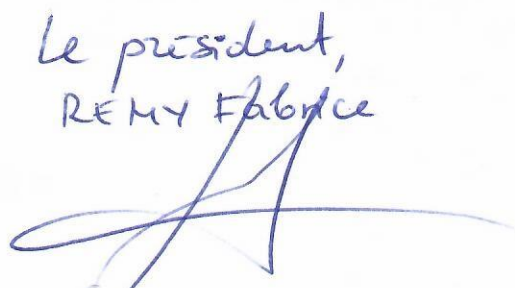 Le président,
REMY Fabrice